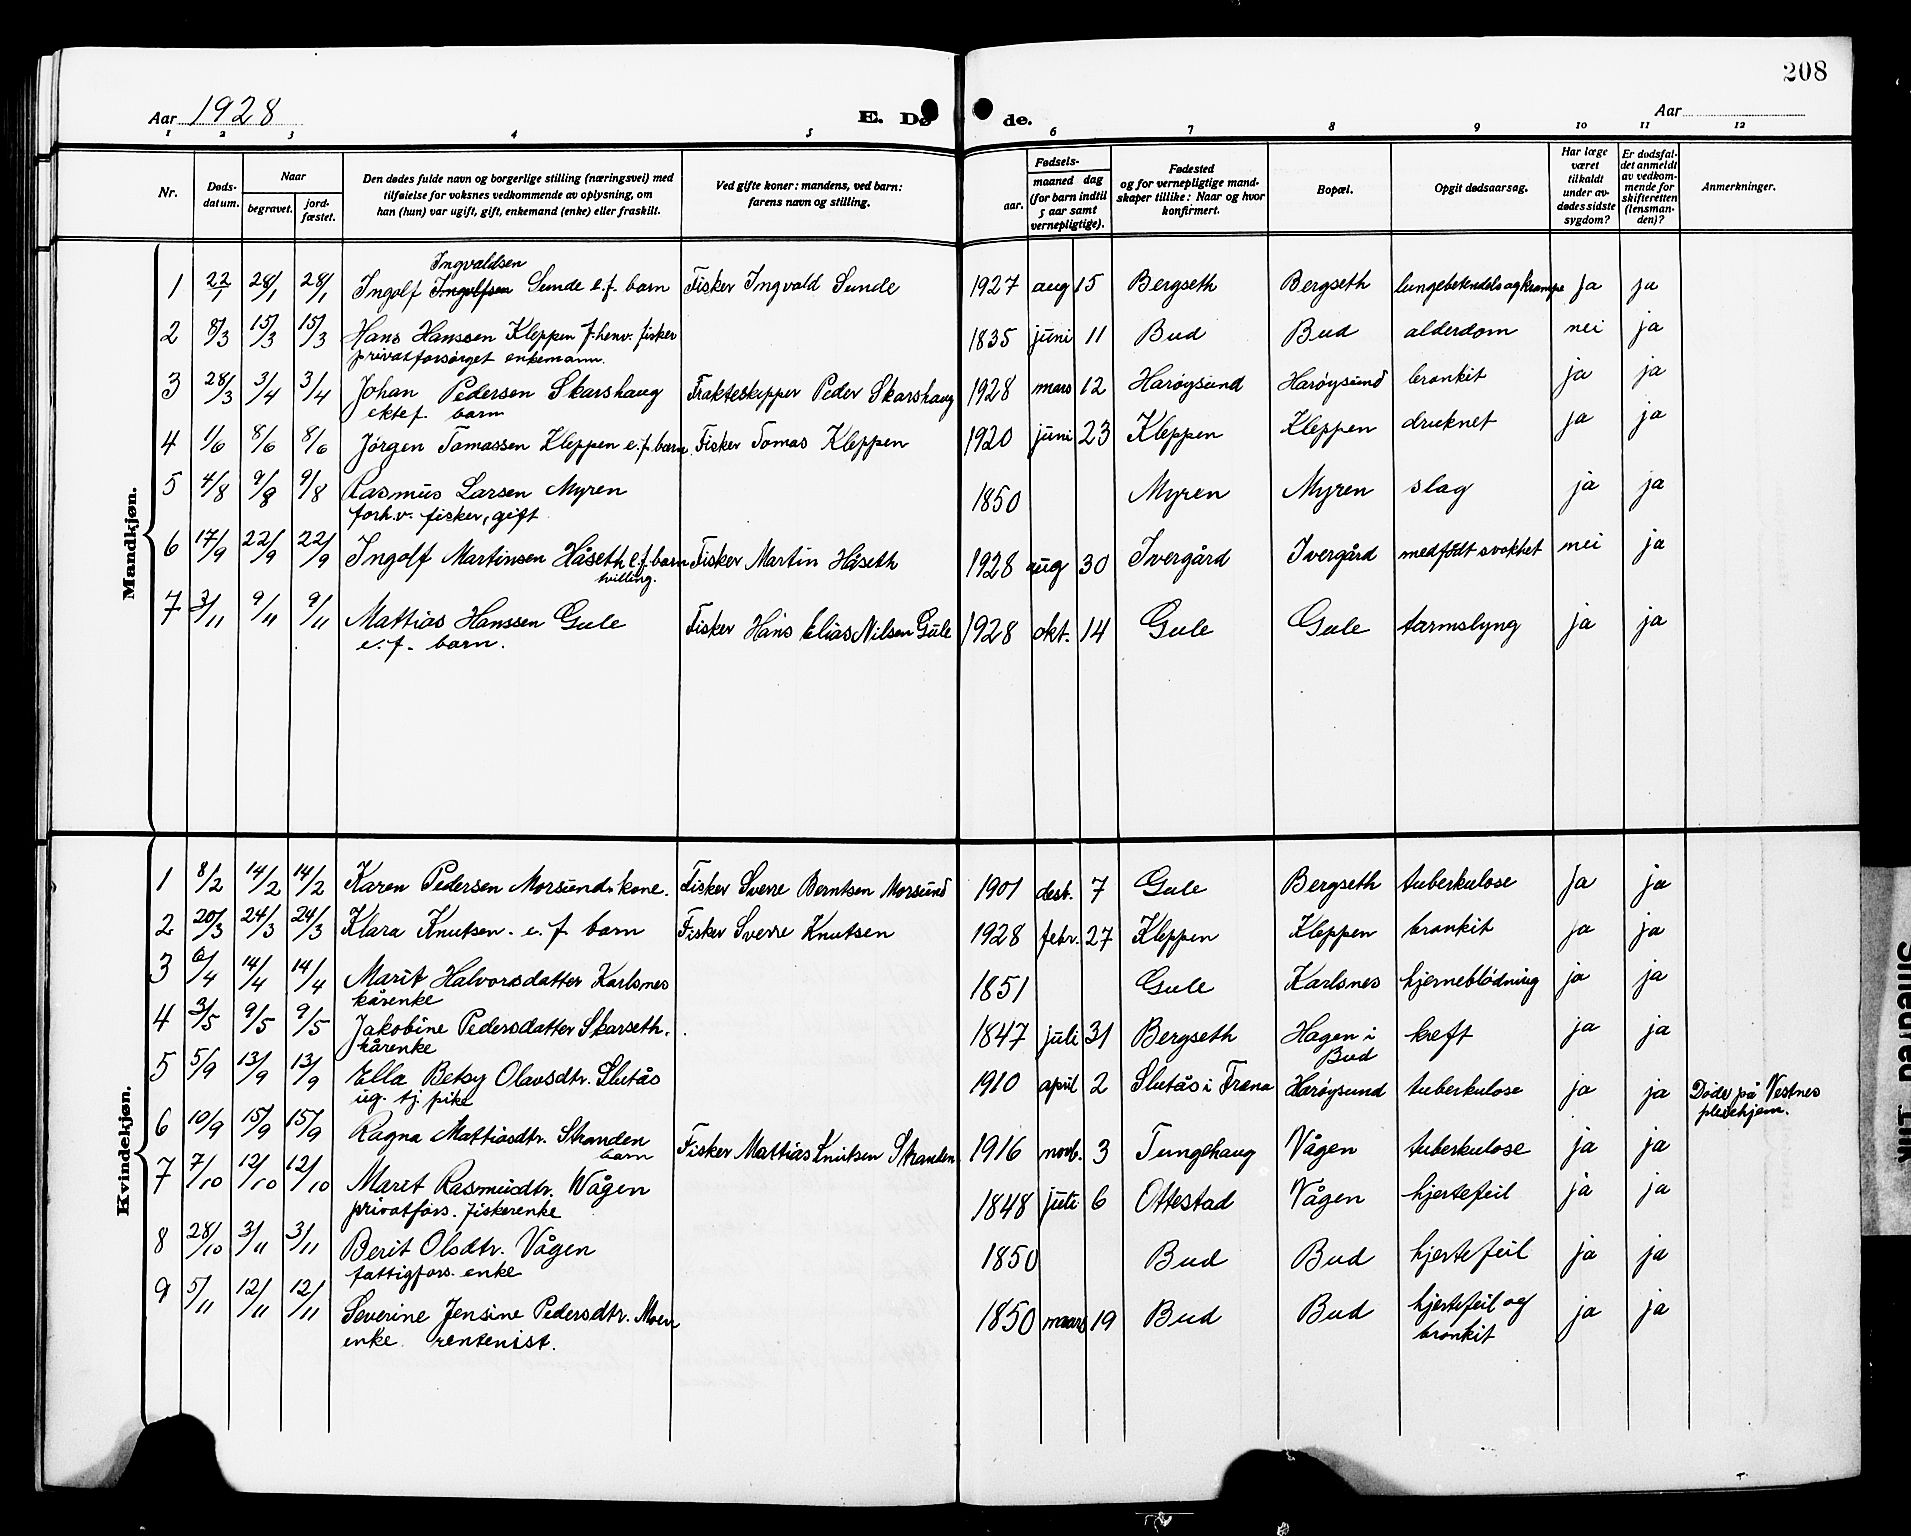 208
Aar 1928 E. Dø de. Aar
1 2 3 4 5 6 7 8 9 10 11 12
Nr. Døds-datum. Naar begravet. jord-fæstet. Den dødes fulde navn og borgerlige stilling (næringsvei) med tilføielse for voksnes vedkommende av oplysning, om han (hun) var ugift, gift, enkemand (enke) eller fraskilt. Ved gifte koner: mandens, ved barn: farens navn og stilling. Fødsels- aar. maaned dag (for barn indtil 5 aar samt vernepligtige). Fødested og for vernepligtige mand-skaper tillike: Naar og hvor konfirmert. Bopæl. Opgit dødsaarsag. Har læge været tilkaldt under av-dødes sidste sygdom? Er dødsfal-det anmeldt av vedkom-mende for skifteretten (lensman-den)? Anmerkninger.
Mandkjøn.
Ingvaldsen
1 22/1 28/1 28/1 Ingolf Ingolfsen Sunde e.f. barn Fisker Ingvald Sunde 1927 aug 15 Bergseth Bergseth lungebetendels og krampe ja ja
2 8/3 15/3 15/3 Hans Hanssen Kleppen f.henv. fisker 1835 juni 11 Bud Bud alderdom nei ja
privatforsørget enkemann.
3 28/3 3/4 3/4 Johan Pedersen Skarshaug Frakteskipper Peder Skarshaug 1928 mars 12 Harøysund Harøysund bronkit ja ja
ektef. barn
4 1/6 8/6 8/6 Jørgen Tomassen Kleppen e.f. barn. Fisker Tomas Kleppen 1920 juni 23 Kleppen Kleppen druknet ja ja
5 4/8 9/8 9/8 Rasmus Larsen Myren 1850 Myren Myren slag ja ja
forh.v. fisker, gift
6 17/9 22/9 22/9 Ingolf Martinsen Håseth e.f. barn Fisker Martin Håseth 1928 aug 30 Ivergård Ivergård medfødt svakhet nei ja
tvilling.
7 3/11 9/11 9/11 Mattias Hanssen Gule Fisker Hans Elias Nilsen Gule 1928 okt. 14 Gule Gule tarmslyng ja ja
e.f. barn.
Kvindekjøn.
1 8/2 14/2 14/2 Karen Pedersen Morsund. kone. Fisker Sverre Berntsen Morsund 1901 desb. 7 Gule Bergseth tuberkulose ja ja
2 20/3 24/3 24/3 Klara Knutsen. e.f. barn Fisker Sverre Knutsen 1928 febr. 27 Kleppen Kleppen bronkit ja ja
3 6/4 14/4 14/4 Marit Halvorsdatter Karlsnes 1851 Gule Karlsnes hjerneblödning ja ja
kårenke
4 3/5 9/5 9/5 Jakobine Pedersdatter Skarseth. 1847 juli 31 Bergseth Hagen i kreft ja ja
kårenke Bud
5 5/9 13/9 13/9 Ella Betsy Olavsdtr. Slutås 1910 april 2 Slutås i Fræna Harøysund tuberkulose ja ja Döde på Vestnes
ug. tj. pike pleiehjem.
6 10/9 15/9 15/9 Ragna Mattiasdtr. Stranden Fisker Mattias Knutsen Stranden 1916 novb. 3 Tungehaug Vågen tuberkulose ja ja
barn
7 7/10 12/10 12/10 Maret Rasmusdtr. Vågen 1848 juli 6 Ottestad Vågen hjertefeil ja ja
privatfors. fiskerenke
8 28/10 3/11 3/11 Berit Olsdtr. Vågen 1850 Bud Bud hjertefeil ja ja
fattigfors. enke
9 5/11 12/11 12/11 Severine Jensine Pedersdtr. Moen 1850 mars 19 Bud Bud hjertefeil og ja ja
enke. rentenist. bronkit